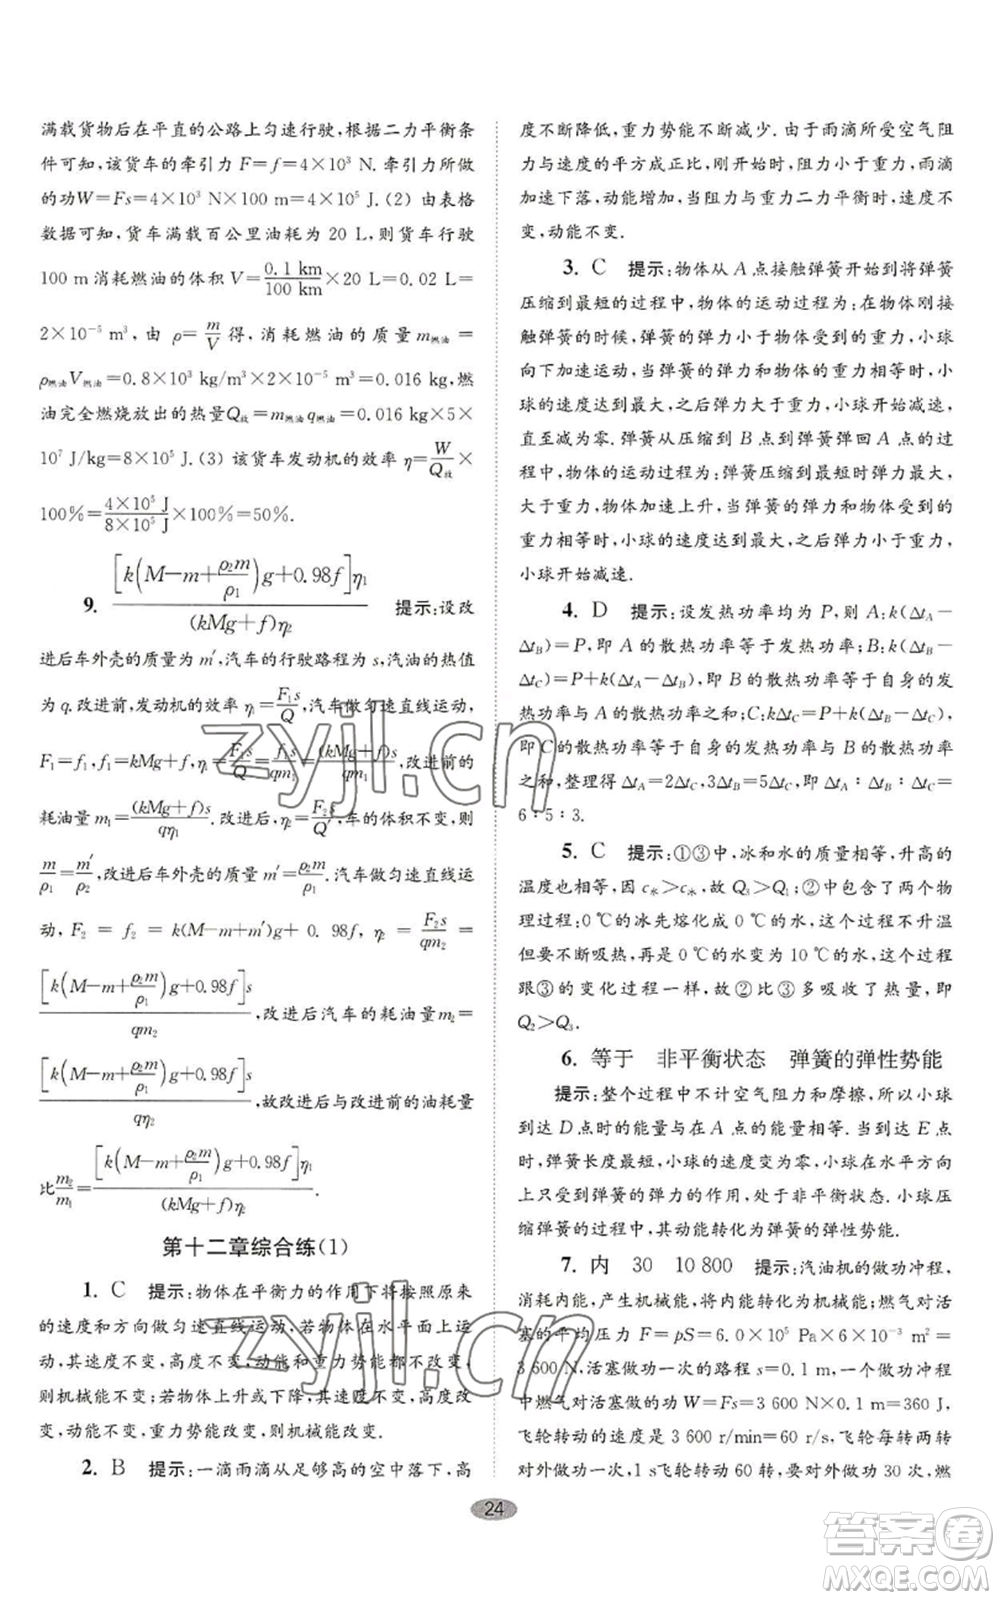 满载货物后在平直的公路上匀速行驶,根据二力平衡条
件可知,该货车的牵引力 F=f=4×10³ N. 牵引力所做
的功W=Fs=4×10³ N×100 m=4×10⁵ J.(2) 由表格
数据可知,货车满载百公里油耗为 20 L,则货车行驶
100 m 消耗燃油的体积 V=\frac{0.1 km}{100 km}×20 L=0.02 L=
2×10⁻⁵ m³. 由 ρ=\frac{m}{V} 得,消耗燃油的质量 m燃油=
ρ燃油V燃油=0.8×10³ kg/m³×2×10⁻⁵ m³=0.016 kg,燃
油完全燃烧放出的热量Q放=m燃油q燃油=0.016 kg×5×
10⁷ J/kg=8×10⁵ J.(3) 该货车发动机的效率 η=\frac{W}{Q放}×
100%=\frac{4×10⁵ J}{8×10⁵ J}×100%=50%.
9. \frac{[k(M-m+\frac{ρ₂m}{ρ₁})g+0.98f]η₁}{(kMg+f)η₂} 提示:设改
进后车外壳的质量为 m′,汽车的行驶路程为 s,汽油的热值
为 q. 改进前,发动机的效率 η₁=\frac{F₁s}{Q},汽车做匀速直线运动,
F₁=f₁,f₁=kMg+f,η₁=\frac{F₁s}{Q}=\frac{f₁s}{qm₁}=\frac{(kMg+f)s}{qm₁},改进前的
耗油量 m₁=\frac{(kMg+f)s}{qη₁}. 改进后,η₂=\frac{F₂s}{Q′},车的体积不变,则
\frac{m}{ρ₁}=\frac{m′}{ρ₂},改进后车外壳的质量 m′=\frac{ρ₂m}{ρ₁}. 汽车做匀速直线运
动,F₂ = f₂ = k(M-m+m′)g+0.98f,η₂ = \frac{F₂s}{qm₂} =
\frac{[k(M-m+\frac{ρ₂m}{ρ₁})g+0.98f]s}{qm₂},改进后汽车的耗油量m₂=
\frac{[k(M-m+\frac{ρ₂m}{ρ₁})g+0.98f]s}{qη₂},故改进后与改进前的油耗量
比\frac{m₂}{m₁}=\frac{[k(M-m+\frac{ρ₂m}{ρ₁})g+0.98f]η₁}{(kMg+f)η₂}.
第十二章综合练(1)
1. C 提示:物体在平衡力的作用下将按照原来
的速度和方向做匀速直线运动,若物体在水平面上运
动,其速度不变,高度不变,动能和重力势能都不改变,
则机械能不变;若物体上升或下降,其速度不变,高度改
变,动能不变,重力势能改变,则机械能改变.
2. B 提示:一滴雨滴从足够高的空中落下,高
度不断降低,重力势能不断减少. 由于雨滴所受空气阻
力与速度的平方成正比,刚开始时,阻力小于重力,雨滴
加速下落,动能增加. 当阻力与重力二力平衡时,速度不
变,动能不变.
3. C 提示:物体从 A 点接触弹簧开始到将弹簧
压缩到最短的过程中,物体的运动过程为:在物体刚接
触弹簧的时候,弹簧的弹力小于物体的重力,小球继续
向下加速运动,当弹簧的弹力和物体的重力相等时,小
球的速度达到最大,之后弹力大于重力,小球开始减速,
直至减为零. 弹簧从压缩到 B 点到弹簧弹回 A 点的过
程中,物体的运动过程为:弹簧压缩到最短时弹力最大,
大于重力,物体加速上升,当弹簧的弹力和物体所受的
重力相等时,小球的速度达到最大,弹力小于重力时,
小球开始减速.
4. D 提示:设发热功率均为 P,则 A:k(Δt_A-
Δt_B)=P,即 A 的散热功率等于发热功率;B:k(Δt_B-
Δt_C)=P+k(Δt_A-Δt_B),即 B 的散热功率等于自身的发
热功率与 A 的散热功率之和;C:kΔt_C=P+k(Δt_B-Δt_C),
即 C的散热功率等于自身的发热功率与 B 的散热功率
之和,整理得 Δt_A=2Δt_C,3Δt_B=5Δt_C,即 Δt_A∶Δt_B∶Δt_C=
6∶5∶3.
5. C 提示:①③中,冰和水的质量相等,升高的
温度也相等,因 c水>c冰,故 Q₃>Q₁;②中包含了两个物
理过程:0 ℃的冰先熔化成 0 ℃的水,这个过程不升温
但要不断吸热,0 ℃的水再变为 10 ℃的水,这个过程
跟③的变化过程一样,故②比③多吸收了热量,即
Q₂>Q₃.
6. 等于 非平衡状态 弹簧的弹性势能
提示:整个过程中不计空气阻力和摩擦,所以小球
到达 D 点时的能量与在 A 点的能量相等. 当到达 E 点
时,弹簧长度最短,小球的速度变为零,小球在水平方向
上只受到弹簧的弹力的作用,处于非平衡状态. 小球压
缩弹簧的过程中,其动能转化为弹簧的弹性势能.
7. 内 30 10 800 提示:汽油机的做功冲程,
消耗内能,产生机械能,将内能转化为机械能;燃气对活
塞的平均压力 F=pS=6.0×10⁵ Pa×6×10⁻³ m²=
3 600 N,活塞做功一次的路程 s=0.1 m,一个做功冲程
中燃气对活塞做的功 W=Fs=3 600 N×0.1 m=360 J,
飞轮转动的速度是 3 600 r/min=60 r/s,飞轮每转两转
对外做功一次,1 s飞轮转动 60 转,要对外做功 30 次,燃
24
zyjl.cn
zyjl.cn
答案卷
MXQE.COM